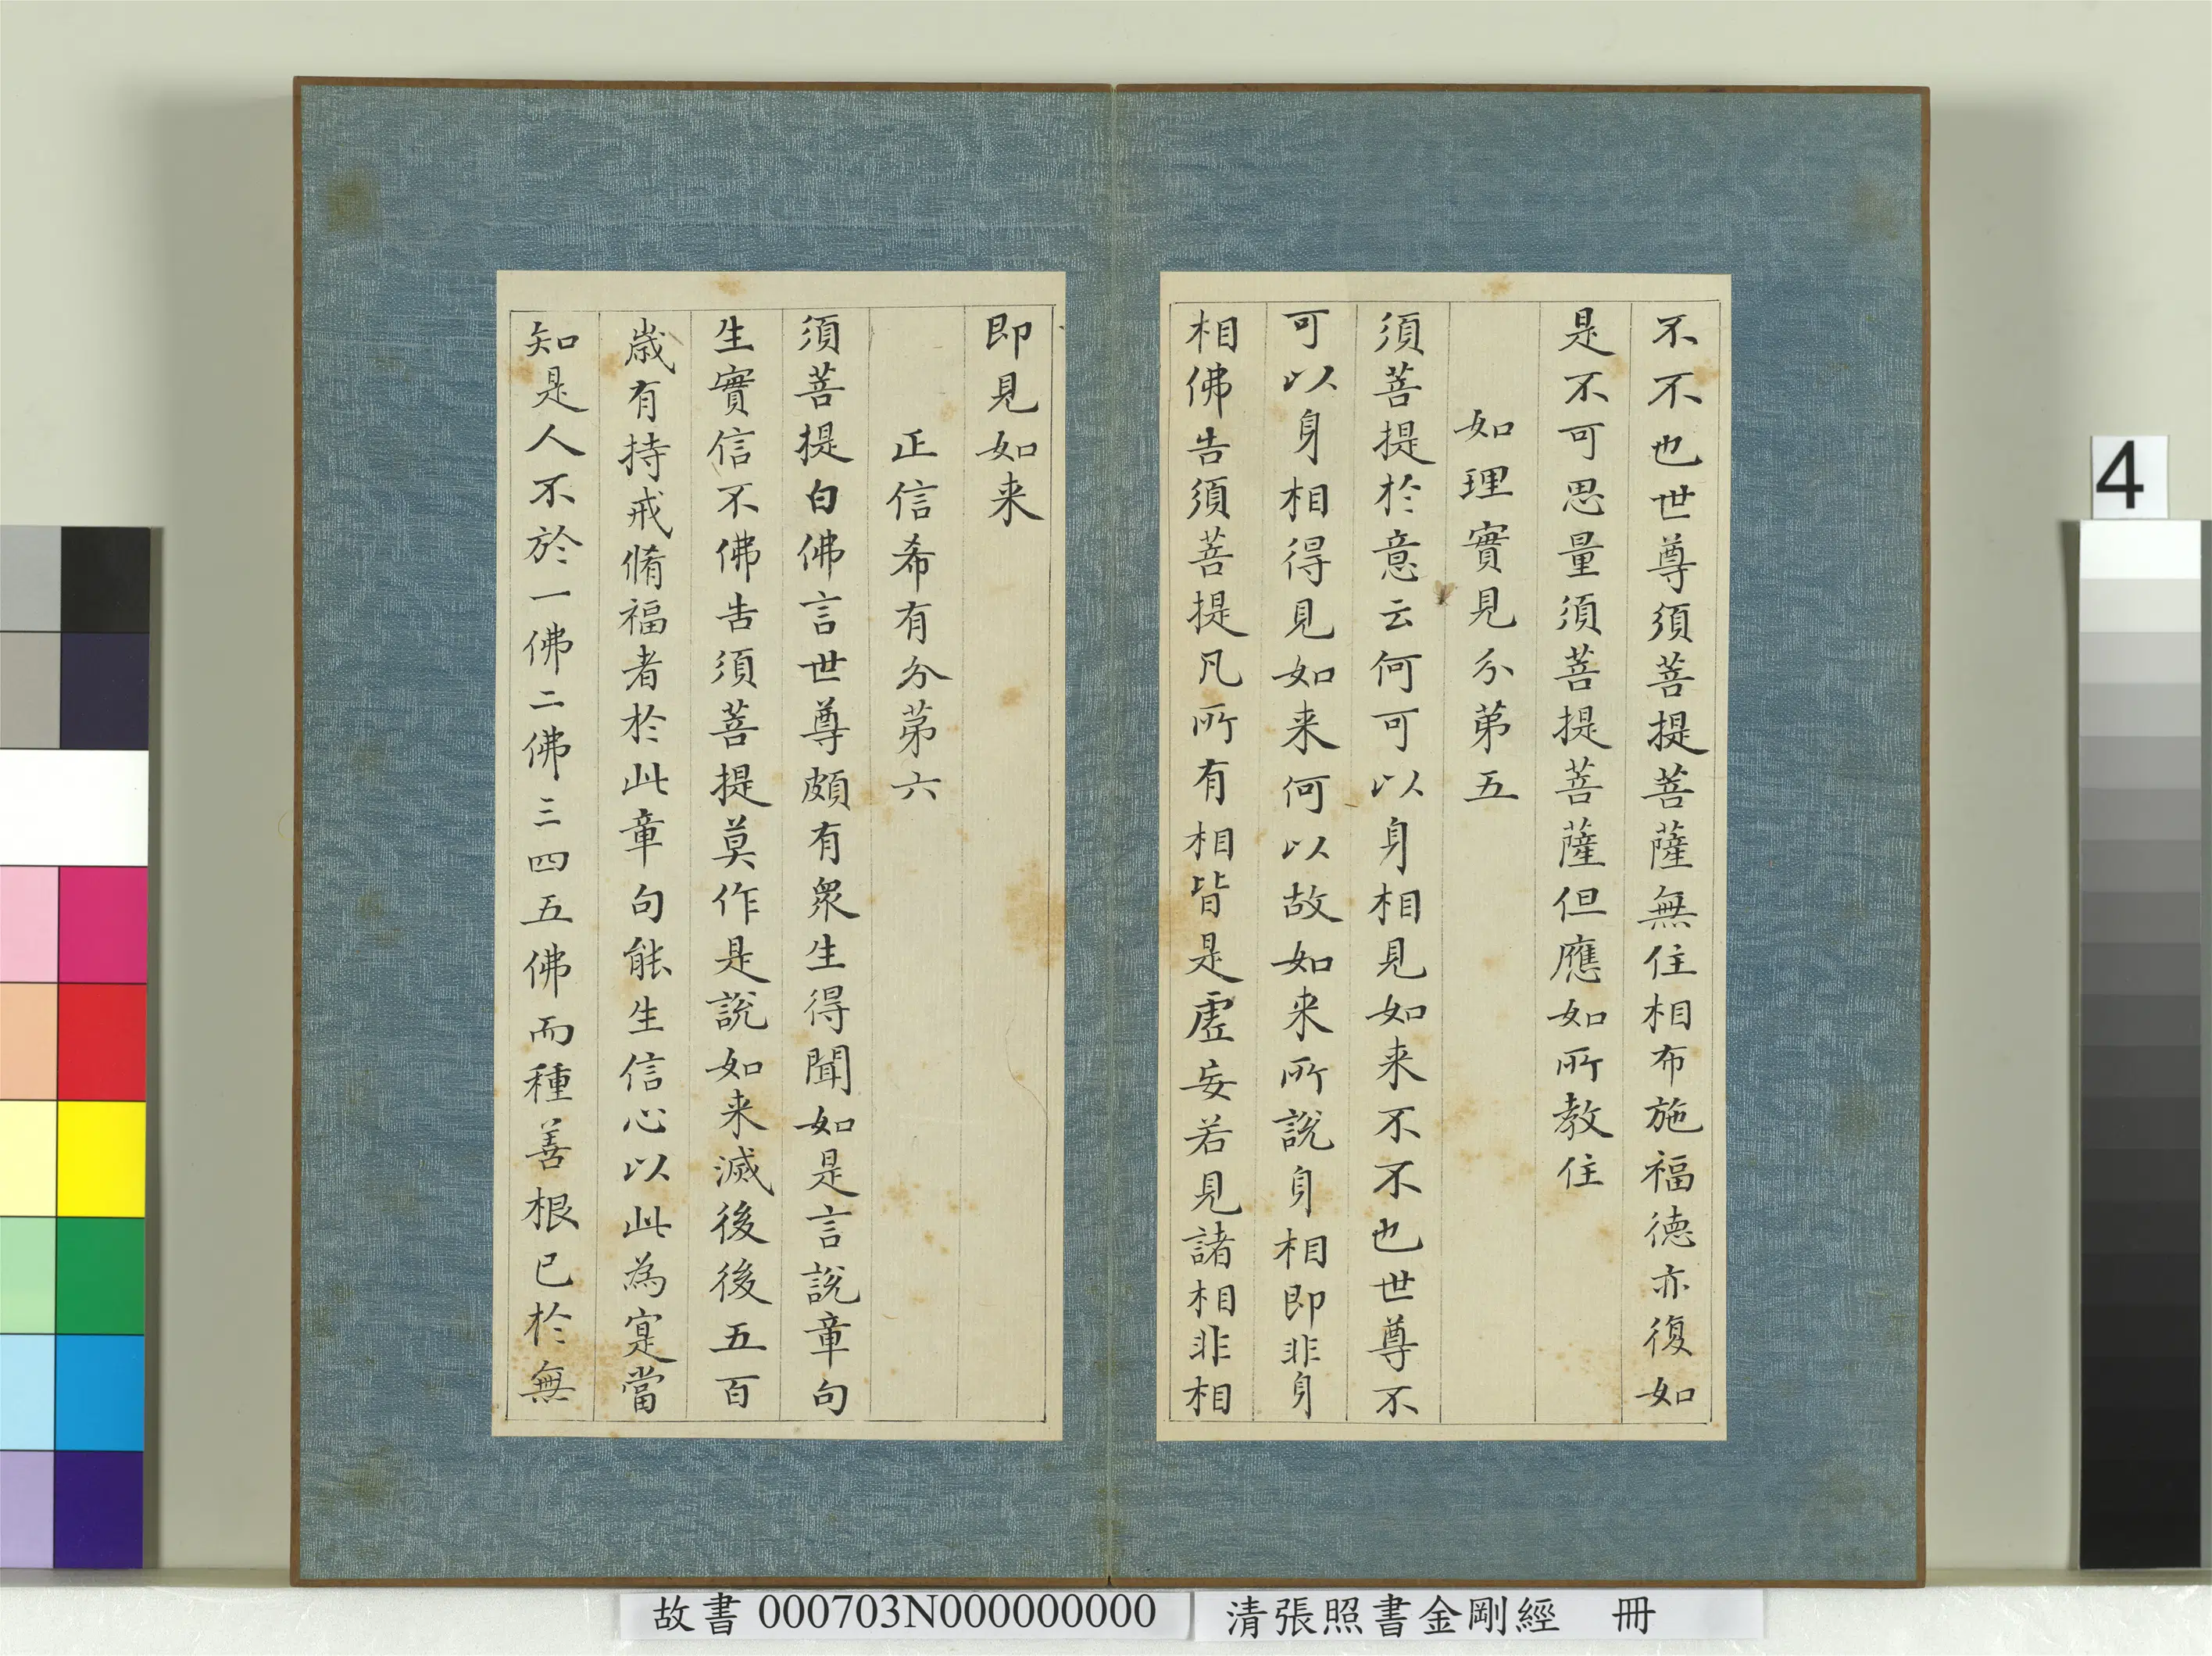 不不也世尊須菩提菩薩無住相布施福德亦復如
是不可思量須菩提菩薩但應如所教住
如理實見分第五
須菩提於意云何可以身相見如来不不也世尊不
可以身相得見如来何以故如来所說身相即非身
相佛告須菩提凡所有相皆是虛妄若見諸相非相
即見如来
正信希有分第六
須菩提白佛言世尊頗有眾生得聞如是言說章句
生實信不佛告須菩提莫作是說如来滅後後五百
歲有持戒脩福者於此章句能生信心以此為寔當
知是人不於一佛二佛三四五佛而種善根已於無
4
故書 000703N000000000
清張照書金剛經 冊